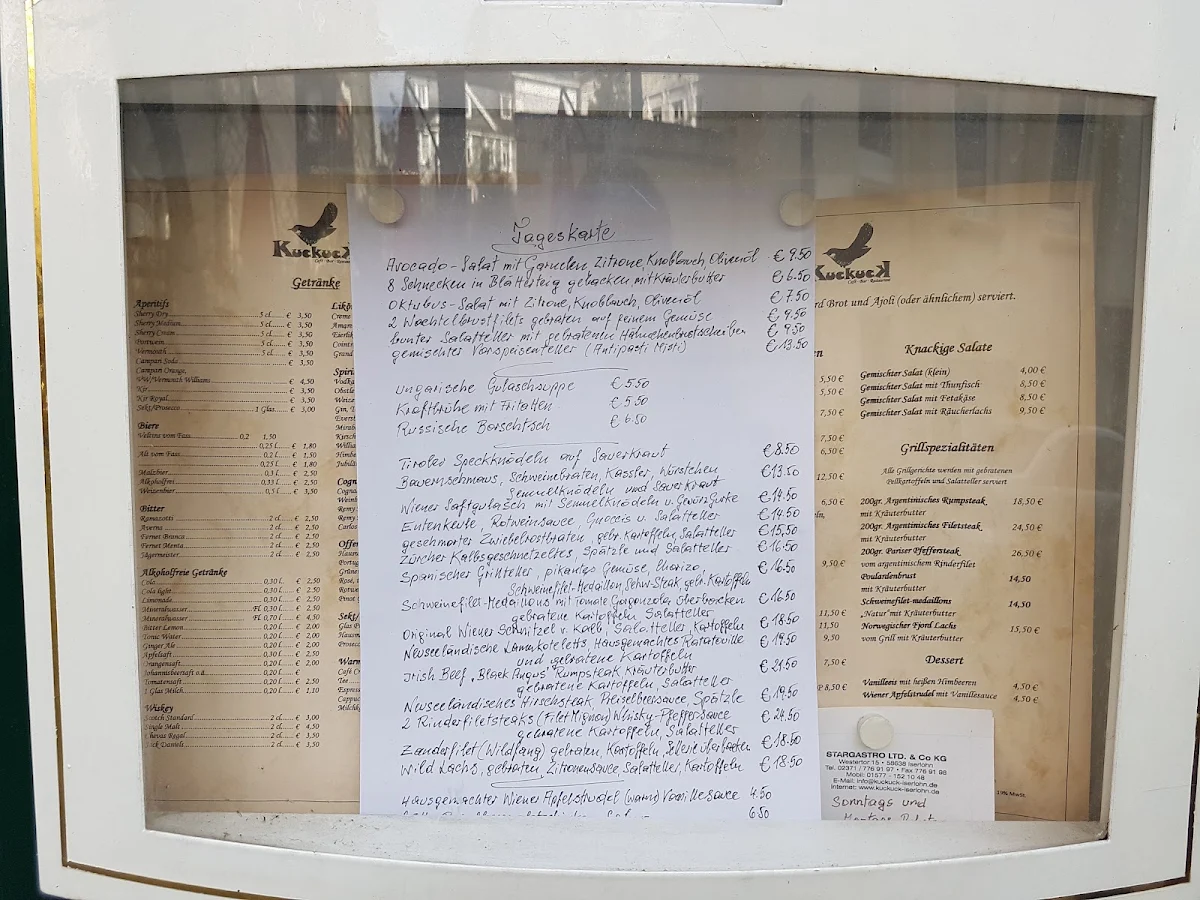 KuckucK
Getränke
Aperitifs
Sherry Dry 5 cl. € 3,50
Sherry Medium 5 cl. € 3,50
Sherry Cream 5 cl. € 3,50
Portwein 5 cl. € 3,50
Vermouth 5 cl. € 3,50
Campari Soda € 3,50
Campari Orange,
€ 4,50
Kir € 3,50
Kir Royal € 3,50
Sekt/Prosecco 1 Glas € 3,00
Biere
Veltins vom Fass 0,2 1,50
0,25 l € 1,80
Alt vom Fass 0,2 l € 1,50
0,25 l € 1,80
Malzbier 0,3 l € 2,50
Alkoholfrei 0,33 l € 2,50
Weizenbier 0,5 l € 3,50
Bitter
Ramazotti 2 cl. € 2,50
Averna 2 cl. € 2,50
Fernet Branca 2 cl. € 2,50
Fernet Menta 2 cl. € 2,50
Jägermeister 2 cl. € 2,50
Alkoholfreie Getränke
Cola 0,30 l. € 2,50
Cola light 0,30 l. € 2,50
Limonade 0,30 l. € 2,50
Mineralwasser Fl. 0,30 l € 2,50
Mineralwasser Fl. 0,70 l € 4,50
Bitter Lemon 0,20 l. € 2,00
Tonic Water 0,20 l. € 2,00
Ginger Ale 0,20 l. € 2,00
Apfelsaft 0,30 l. € 2,50
Orangensaft 0,20 l. € 2,00
Johannisbeersaft o.ä.
Tomatensaft 0,20 l. € 2,50
1 Glas Milch 0,20 l. € 1,10
Wiskey
Scotch Standard 2 cl. € 3,00
Single Malt 2 cl. € 4,50
Chevas Regal 2 cl. € 3,50
Jack Daniels 2 cl. € 3,50
Tageskarte
Avocado-Salat mit Garnelen Zitrone, Knoblauch, Olivenöl € 9.50
8 Schnecken in Blätterteig gebacken, mit Kräuterbutter € 6.50
Oktubus-Salat mit Zitrone, Knoblauch, Olivenöl € 7.50
2 Wachtelbrustfilets gebraten auf feinem Gemüse € 9.50
bunter Salatteller mit gebratenen Hähnchenbrustscheiben € 9.50
gemischter Vorspeisenteller (Antipasti Misti) € 13.50
ungarische Gulaschsuppe € 5.50
Kraftbrühe mit Fritatten € 5.50
Russische Borschtsch € 6.50
Tiroler Speckknödeln auf Sauerkraut € 8.50
Bauernschmaus, Schweinebraten, Kassler, Würstchen € 13.50
Semmelknödeln und Sauerkraut
Wiener Saftgulasch mit Semmelknödeln u. Gewürzgurke € 14.50
Entenkeule, Rotweinsauce, Gnoccis u. Salatteller € 14.50
geschmorter Zwiebelrostbraten, gebr. Kartoffeln, Salatteller € 15,50
Züricher Kalbsgeschnetzeltes, Spätzle und Salatteller € 16.50
Spanischer Grillteller, pikantes Gemüse, Chorizo, € 16.50
Schweinefilet-Medaillon, Schw-Steak, gebr. Kartoffeln
Schweinefilet-Medaillons mit Tomate Gorgonzola überbacken € 16.50
gebratene Kartoffeln Salatteller
Original Wiener Schnitzel v. Kalb, Salatteller, Kartoffeln € 18.50
Neuseeländische Lammkoteletts, Hausgemachtes Ratatouille € 19.50
und gebratene Kartoffeln
Irish Beef „Black Angus" Rumpsteak Kräuterbutter € 21.50
gebratene Kartoffeln, Salatteller
Neuseeländisches Hirschsteak, Preiselbeersauce, Spätzle € 19.50
2 Rinderfiletsteaks (Filet Mignon) Whisky-Pfeffersauce € 24.50
gebratene Kartoffeln, Salatteller
Zanderfilet (Wildfang) gebraten, Kartoffeln, Sellerie überbacken € 18.50
Wild Lachs, gebraten, Zitronensauce, Salatteller, Kartoffeln € 18.50
Hausgemachter Wiener Apfelstrudel (warm) Vanillesauce 4.50
6.50
KuckucK
Café · Bar · Restaurant
rd Brot und Ajoli (oder ähnlichem) serviert.
Knackige Salate
Gemischter Salat (klein) 4,00 €
Gemischter Salat mit Thunfisch 8,50 €
Gemischter Salat mit Fetakäse 8,50 €
Gemischter Salat mit Räucherlachs 9,50 €
Grillspezialitäten
Alle Grillgerichte werden mit gebratenen
Pellkartoffeln und Salatteller serviert
200gr. Argentinisches Rumpsteak 18,50 €
mit Kräuterbutter
200gr. Argentinisches Filetsteak 24,50 €
mit Kräuterbutter
200gr. Pariser Pfeffersteak 26,50 €
vom argentinischem Rinderfilet
Poulardenbrust 14,50
mit Kräuterbutter
Schweinefilet-medaillons 14,50
„Natur" mit Kräuterbutter
Norwegischer Fjord Lachs 15,50 €
vom Grill mit Kräuterbutter
Dessert
Vanilleeis mit heißen Himbeeren 4,50 €
Wiener Apfelstrudel mit Vanillesauce 4,50 €
19% MwSt.
STARGASTRO LTD. & Co KG
Westertor 15 • 58638 Iserlohn
Tel. 02371 / 776 91 97 • Fax 776 91 98
Mobil: 01577 - 152 10 48
E-Mail: info@kuckuck-iserlohn.de
Internet: www.kuckuck-iserlohn.de
Sonntags und